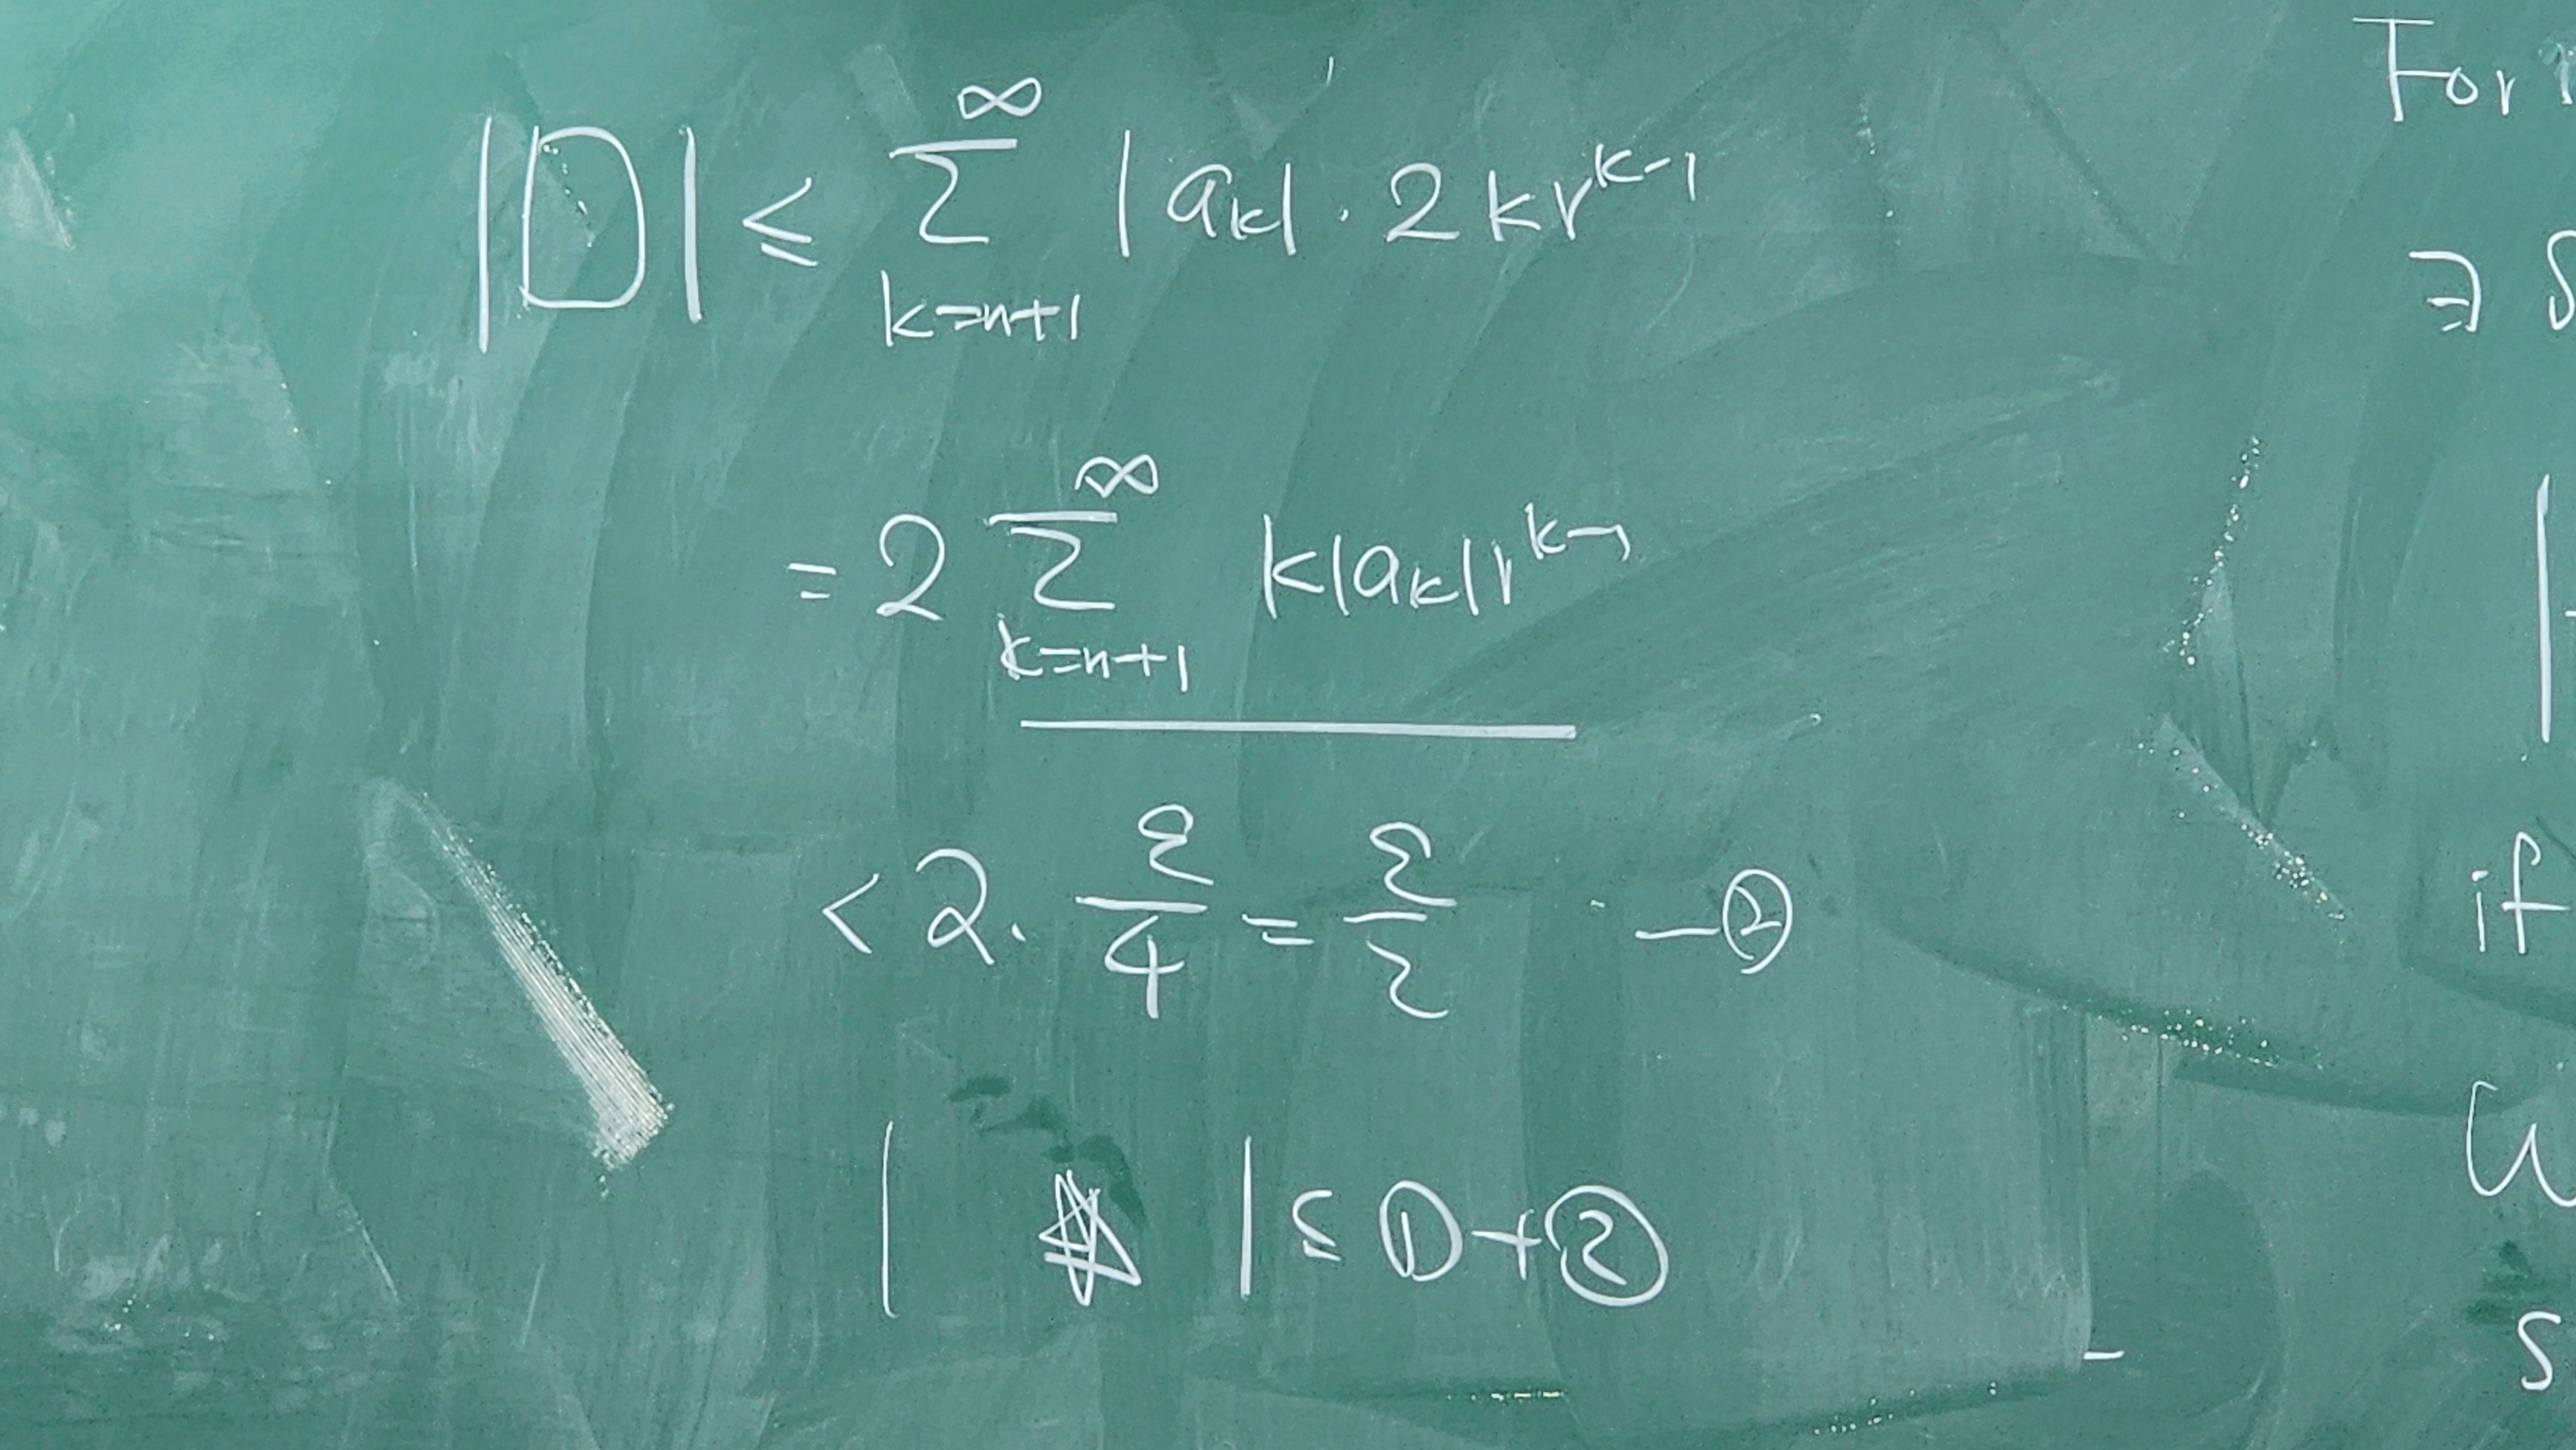 |D| ≤ ∑_{k=n+1}^{∞} |a_k| · 2kr^{k-1}
= 2 ∑_{k=n+1}^{∞} k|a_k|r^{k-1}
< 2 · ε/4 = ε/2 — ②
| ☆ | ≤ ① + ②
For
∃ δ
|
if
s